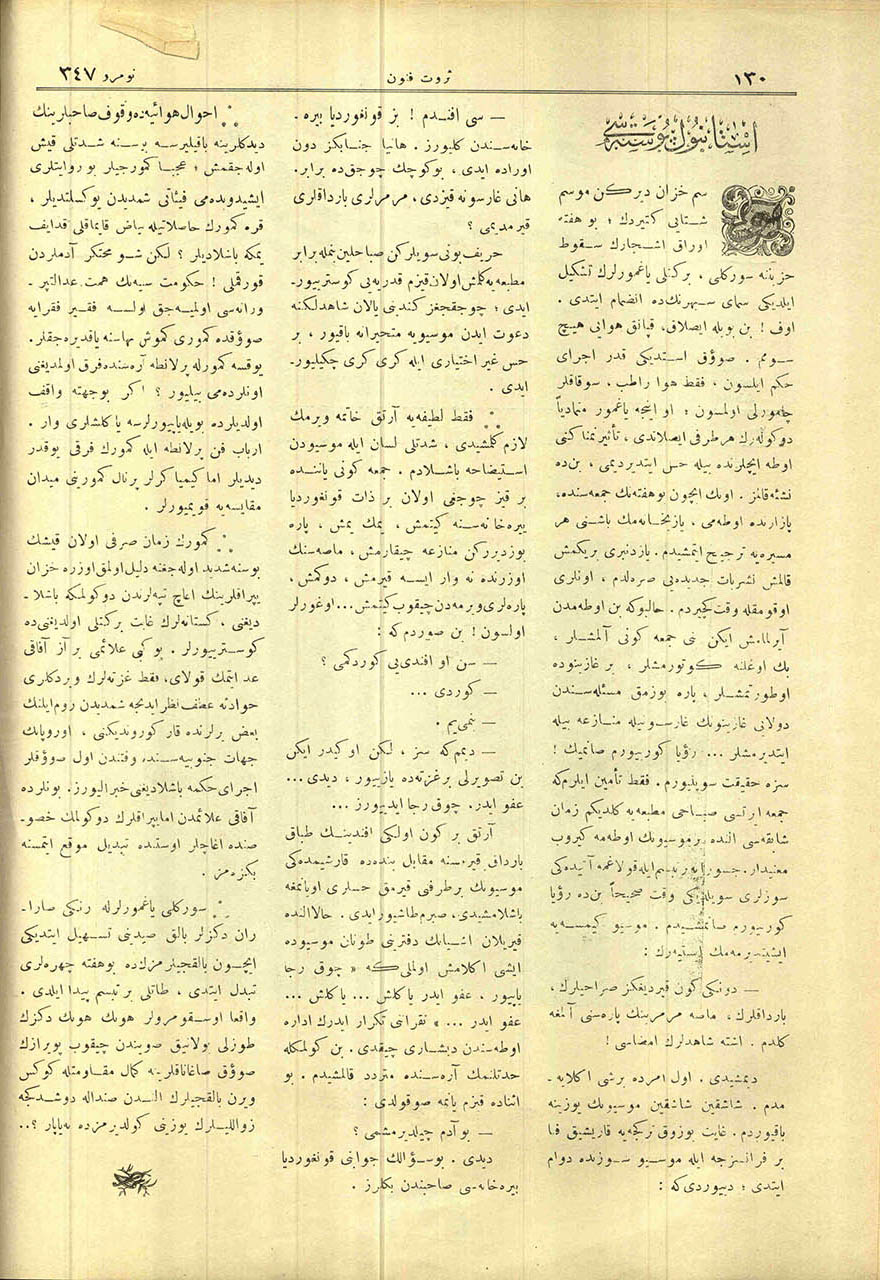 ١٣٠
ثروت فنون
نومرو ٣٤٧
استانبول پوسته‌سی
سم خزان ديركن موسم
شتايی كتيردك ؛ بو هفته
اوراق اشجارك سقوط
حزيننه سوركلی ، بركتلی ياغمورلرك تشكيل
ايلديكی سمای سپهرنك‌ده انضمام ايتدی .
اوف ! بن بويله ايصلاق، قپانق هوايی هيچ
سومم . صوؤق استديكی قدر اجرای
حكم ايلسون ، فقط هوا راطب ، سوقاقلر
چامورلی اولمسون ؛ او اينجه ياغمور متمادياً
دوكوله‌رك هر طرفی ايصلاندی ، تأثير نمناكنی
اوطه ايچلرنده بيله حس ايتديرديمی ، بن‌ده
نشئه قالمز . اونك ايچون بو هفته‌نك جمعه‌سنده،
پازارنده اوطه‌می ، يازيخانه‌مك باشنی هر
مسيره‌يه ترجيح ايتمشيدم . يازدنبری بريكمش
قالمش نشريات جديده‌يی صره‌لدم ، اونلری
اوقومقله وقت كچيردم . حالبوكه بن اوطه‌مدن
آيرلمامش ايكن نی جمعه كونی آلمشلر ،
بك اوغلنه كوتورمشلر ، بر غازينوده
اوطورتمشلر ، پاره بوزمق مسئله‌سندن
دولايی غازينونك غارسونيله منازعه بيله
ايتديرمشلر ... رؤيا كورييورم صانميك !
سزه حقيقت سويليورم . فقط تأمين ايلرم‌كه
جمعه ايرتسی صباحی مطبعه‌يه كلديكم زمان
شابقه‌سی النده بر موسيونك اوطه‌مه كيروب
معنيدار، جسورانه بر تبسم ايله قولاغمه آتيده‌كی
سوزلری سويلديكی وقت صحيحاً بن‌ده رؤيا
كورييورم صانمشيدم . موسيو كيمسه‌يه
ايشيتديرمه‌مك ايستيه‌رك :
— دونكی كون قيرديغكز صراحيلرك ،
بارداقلرك ، ماصه مرمرينك پاره‌سنی آلمغه
كلدم . اشته شاهدلرك امضاسی !
ديمشيدی . اول امرده برشی اكلايه‌ـ
مدم . شاشقين شاشقين موسيونك يوزينه
باقيوردم . غايت بوزوق تركجه‌يه قاريشيق فنا
بر فرانسزجه ايله موسيو سوزينده دوام
ايتدی ؛ دييوردی كه :
— سی افندم ! بز قونغورديا بيره .
خانه‌سندن كليورز . هانيا جنابكز دون
اوراده ايدی ، بوكوچك چوجق‌ده برابر.
هانی غارسونه قيزدی ، مرمرلری بارداقلری
قيرمديمی ؟
حريف بونی سويلركن صباحلين بنمله برابر
مطبعه‌يه كلمش اولان قيزم قدريه‌يی كوسترييورـ
ايدی ؛ چوجقجغز كندينی يالان شاهدلكنه
دعوت ايدن موسيويه متحيرانه باقيور ، بر
حس غير اختياری ايله كری كری چكيليورـ
ايدی .
⁂ فقط لطيفه‌يه آرتق خاتمه ويرمك
لازم كلمشيدی ، شدتلی لسان ايله موسيودن
استيضاحه باشلادم . جمعه كونی ياننده
بر قيز چوجغی اولان بر ذات قونغورديا
بيره‌خانه‌سنه كيتمش ، يمك يمش ، پاره
بوزديرركن منازعه چيقارمش ، ماصه‌سنك
اوزرنده نه وار ايسه قيرمش ، دوكمش ،
پاره‌لری ويرمه‌دن چيقوب كيتمش... اوغورلر
اولسون ! بن صوردم كه :
— سن او افندی‌يی كوردكمی ؟
— كوردی ...
— بنمی‌يم .
— ديمم كه سز ، لكن او كيدر ايكن
بن تصويرلی بر غزته‌ده يازييور ، ديدی ...
عفو ايدر. چوق رجا ايدييورز ...
آرتق بر كون اولكی افندينك طباق
بارداق قيرمسنه مقابل بنده‌ده قارشيمده‌كی
موسيونك بر طرفی قيرمق حسلری اويانمغه
باشلامشيدی، صبرم طاشيور ايدی . حالا النده
قيريلان اشيانك دفترينی طوتان موسيوده
ايشی اكلامش اولملی كه « چوق رجا
ياپيور ، عفو ايدر ياكلش ... ياكلش ...
عفو ايدر ... » نقراتنی تكرار ايدرك اداره
اوطه‌سندن ديشاری چيقدی . بن كولمكله
حدتلنمك آره‌سنده متردد قالمشيدم . بو
اثناده قيزم يانمه صوقولدی :
— بو آدم چيلديرمشمی ؟
ديدی . بو سؤالك جوابنی قونغورديا
بيره‌خانه‌سی صاحبندن بكلرز .
⁂ احوال هوائيه‌ده وقوف صاحبلرينك
ديدكلرينه باقيليرسه بو سنه شدتلی قيش
اوله‌جقمش ؛ عجبا كمورجيلر بو روايتلری
ايشيدوبده‌می فيئاتی شمديدن يوكسلتديلر ،
قره كمورك حاصلاتيله بياض قايماقلی قدايف
يمكه باشلاديلر ؟ لكن شو محتكر آدملردن
قورقملی ! حكومت سنيه‌نك همت عدالتپرـ
ورانه‌سی اولميه‌جق اولسه فقير فقرايه
صوؤقده كموری كموش بهاسنه ياقديره‌جقلر.
يوقسه كمورله پرلانطه آره‌سنده فرق اولمديغنی
اونلرده‌می بيليور ؟ اكر بوجهته واقف
اولديلرده بويله ياپييورلرسه ياكلشلری وار .
ارباب فن پرلانطه ايله كمورك فرقی يوقدر
ديديلر اما كيمياكرلر پرنال كمورينی ميدان
مقايسه‌يه قويميورلر .
⁂ كمورك زمان صرفی اولان قيشك
بو سنه شديد اوله‌جغنه دليل اولمق اوزره خزان
يپراقلرينك اغاج تپه‌لرندن دوكولمكه باشلاـ
ديغنی ، كستانه‌لرك غايت بركتلی اولديغنی‌ده
كوسترييورلر . بوكبی علائمی بر آز آفاقی
عد ايتمك قولای، فقط غزته‌لرك ويردكلری
حوادثه عطف نظر ايدنجه شمديدن روم ايلنك
بعض يرلرنده قار كورونديكنی ، اوروپانك
جهات جنوبيه‌سنده وقتندن اول صوؤقلر
اجرای حكمه باشلاديغنی خبر اليورز. بونلرده
آفاقی علائمدن اما يپراقلرك دوكولمك خصوـ
صنده اغاچلر اوستنده تبديل موقع ايتمسنه
بكزه‌مز .
⁂ سوركلی ياغمورلرله رنكی صاراـ
ران دكزلر بالق صيدينی تسهيل ايتديكی
ايچون بالقجيلرمزك‌ده بو هفته چهره‌لری
تبدل ايتدی ، طاتلی بر تبسم پيدا ايلدی .
واقعا اوسقومرولر هونك هونك دكزك
طوزلی بولانيق صويندن چيقوب پويرازك
صوؤق صاغاناقلرينه كمال مقاومتله كوكس
ويرن بالقجيلرك الندن صنداله دوشدكجه
زواللیلرك يوزينی كولديرمزده نه‌ياپار ؟..